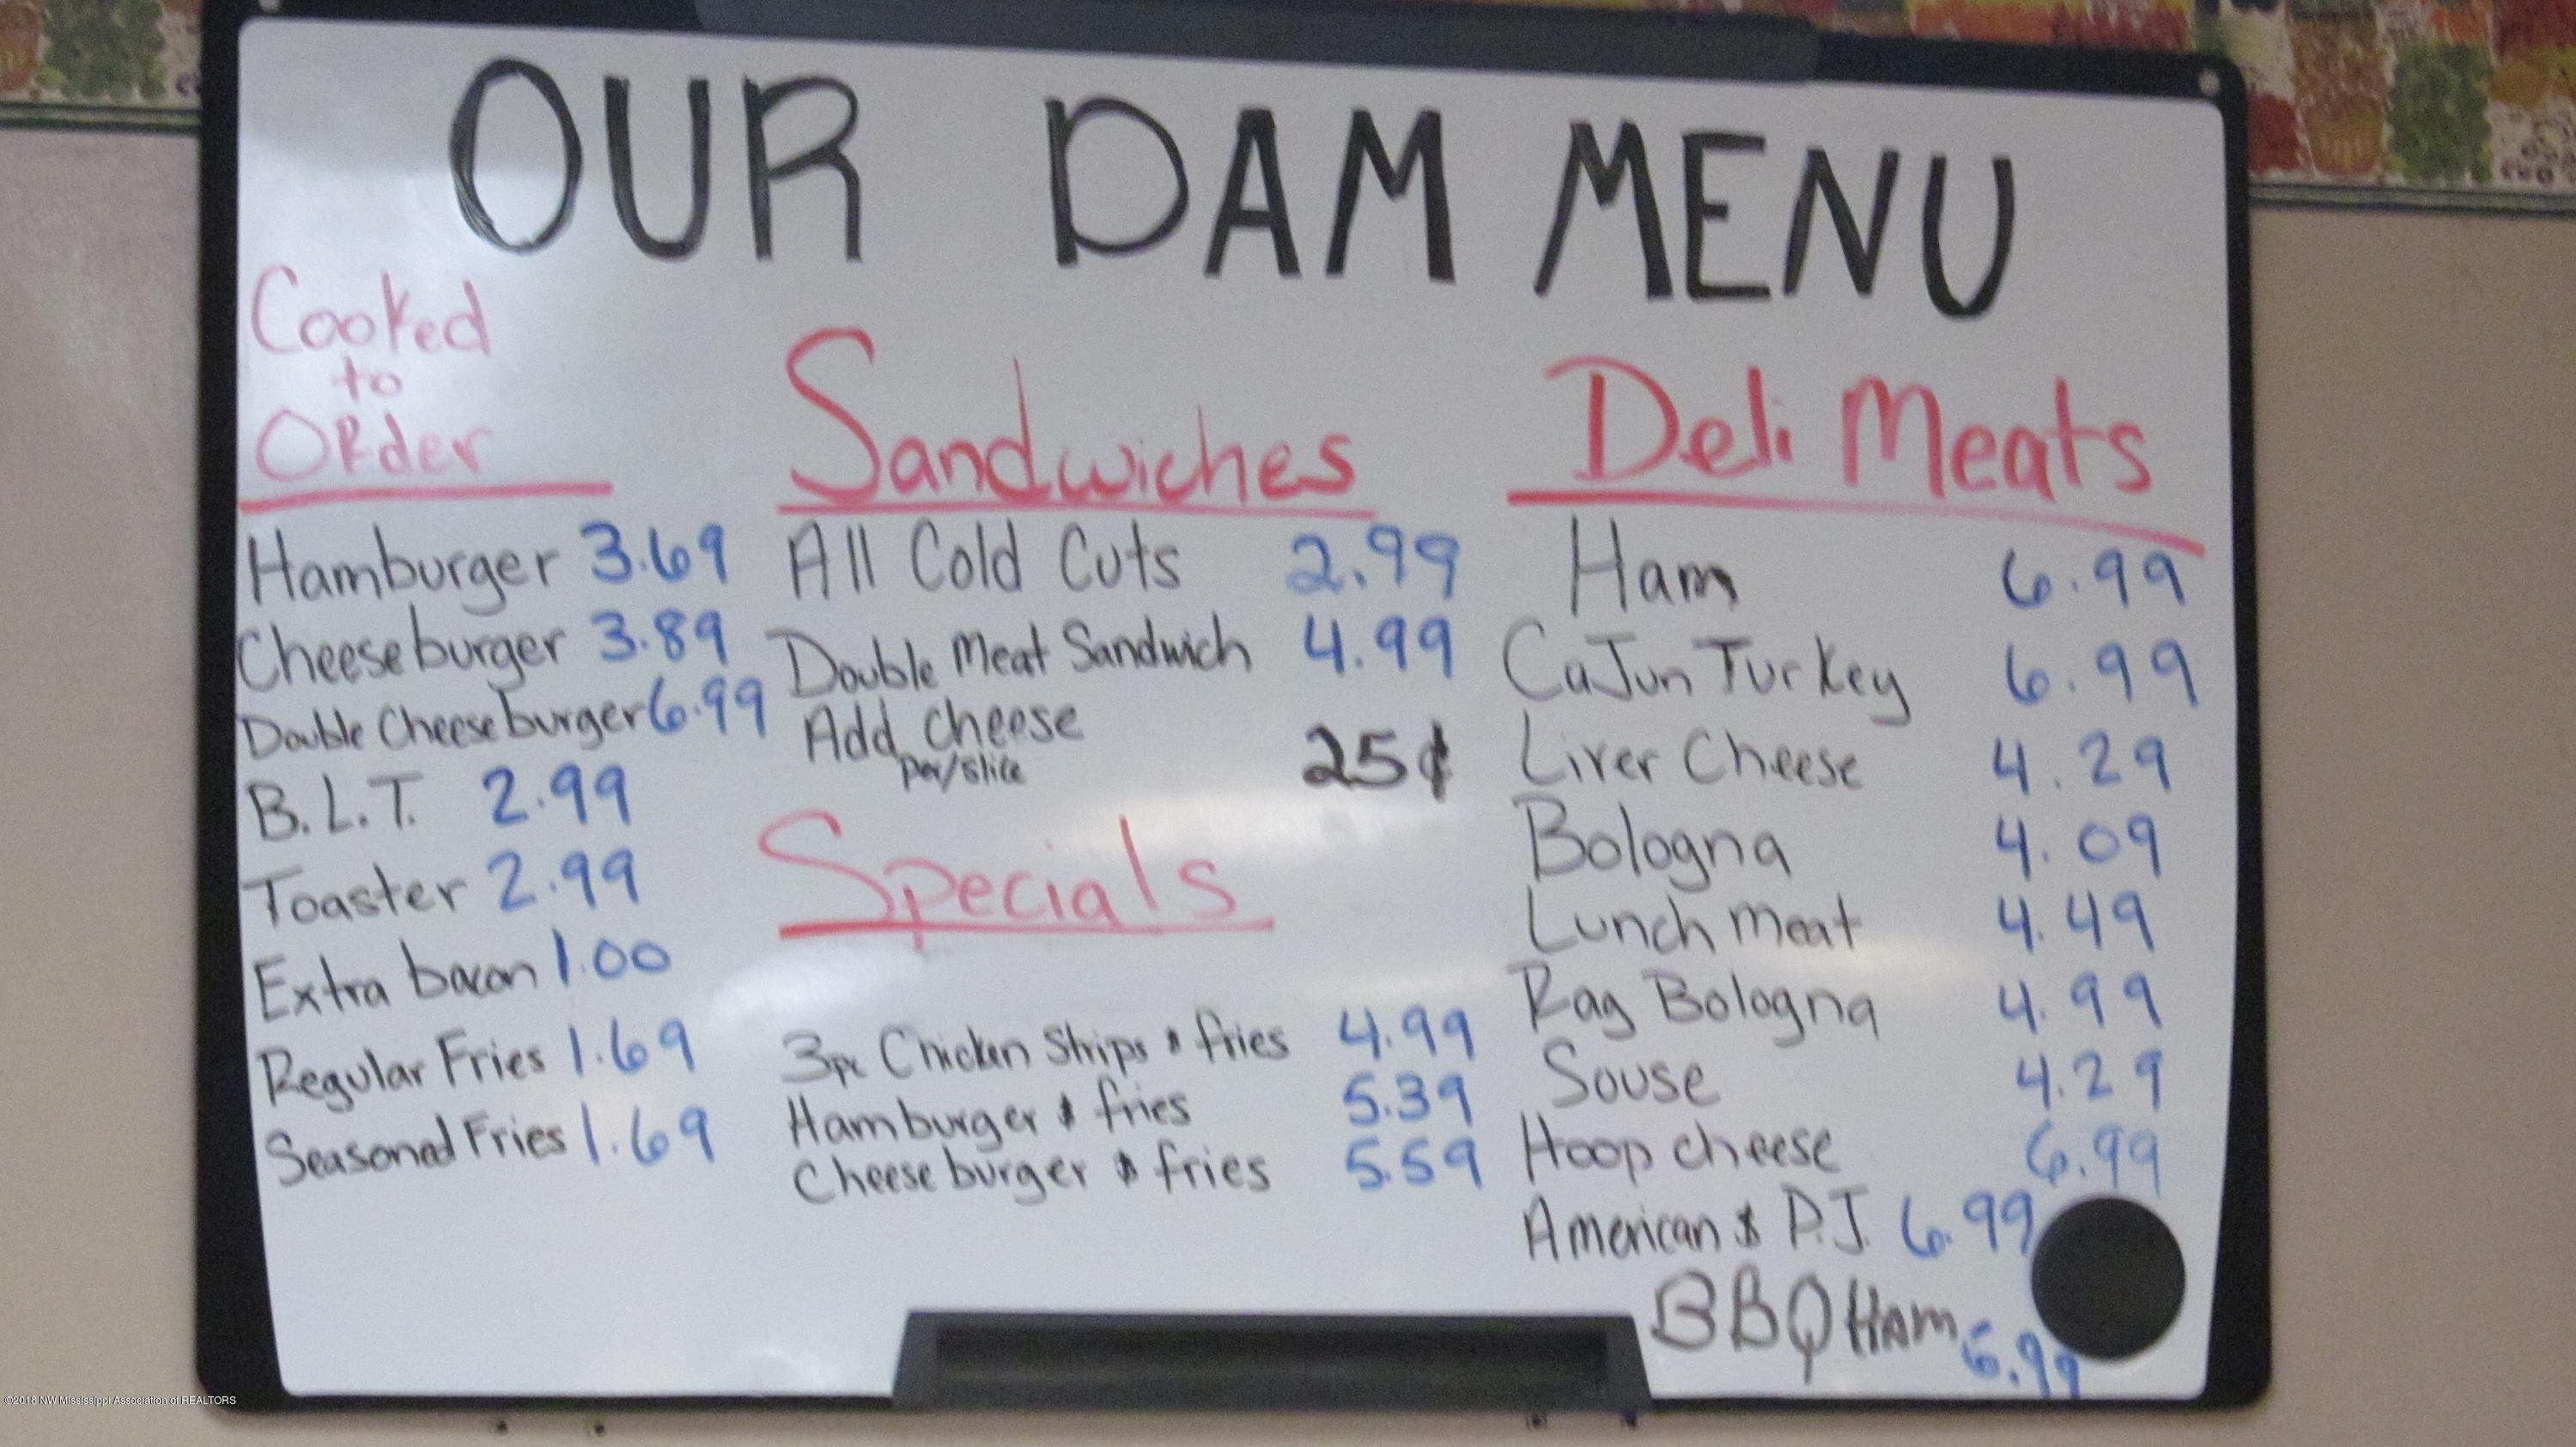 OUR DAM MENU
Cooked
to
Order
Hamburger 3.69
Cheeseburger 3.89
Double Cheeseburger 6.99
B.L.T. 2.99
Toaster 2.99
Extra bacon 1.00
Regular Fries 1.69
Seasoned Fries 1.69
Sandwiches
All Cold Cuts 2.99
Double Meat Sandwich 4.99
Add cheese 25¢
per/slice
Specials
3pc Chicken Strips & fries 4.99
Hamburger & fries 5.39
Cheeseburger & fries 5.59
Deli Meats
Ham 6.99
CaJun Turkey 6.99
Liver Cheese 4.29
Bologna 4.09
Lunch meat 4.49
Rag Bologna 4.99
Souse 4.29
Hoop cheese 6.99
American & P.J. 6.99
BBQ Ham 6.99
©2018 NW Mississippi Association of REALTORS